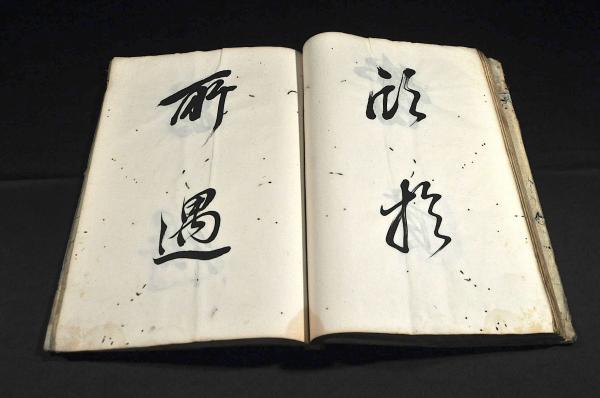 欣於
所遇